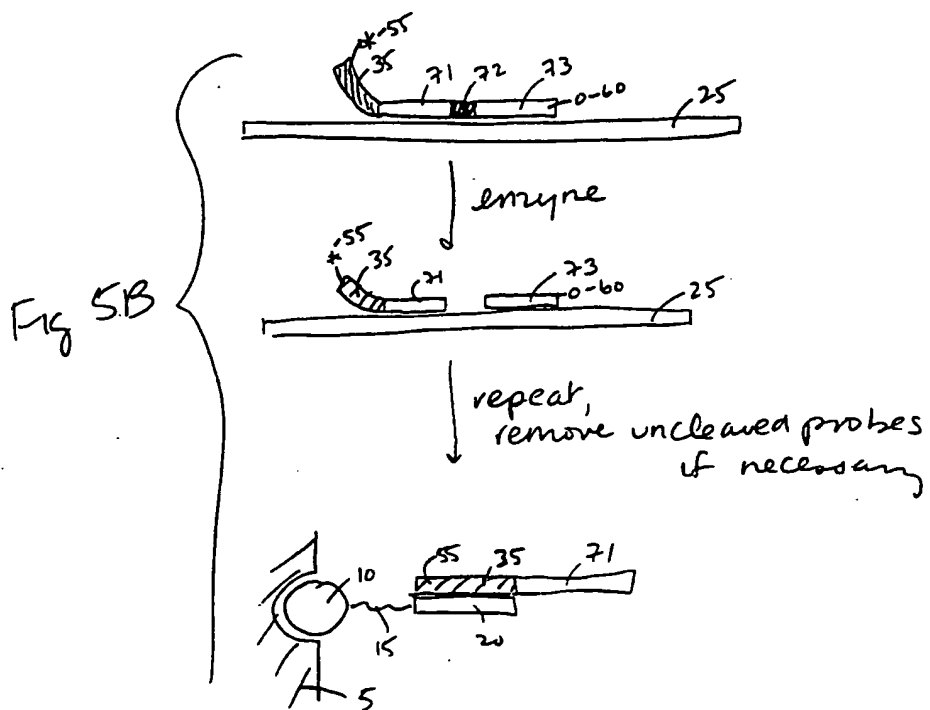 *-55
35
71 72 73
0-60
25
enzyne
*-55
35
71
73
0-60
25
Fig 5B
repeat,
remove uncleaved probes
if necessary
10
55
35
71
15
20
5